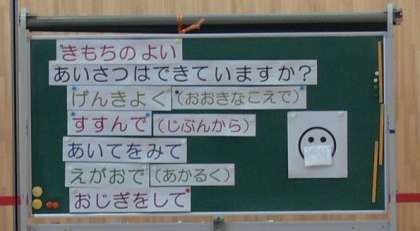 きもちのよい
あいさつはできていますか？
げんきよく（おおきなこえで）
すすんで（じぶんから）
あいてをみて
えがおで（あかるく）
おじぎをして